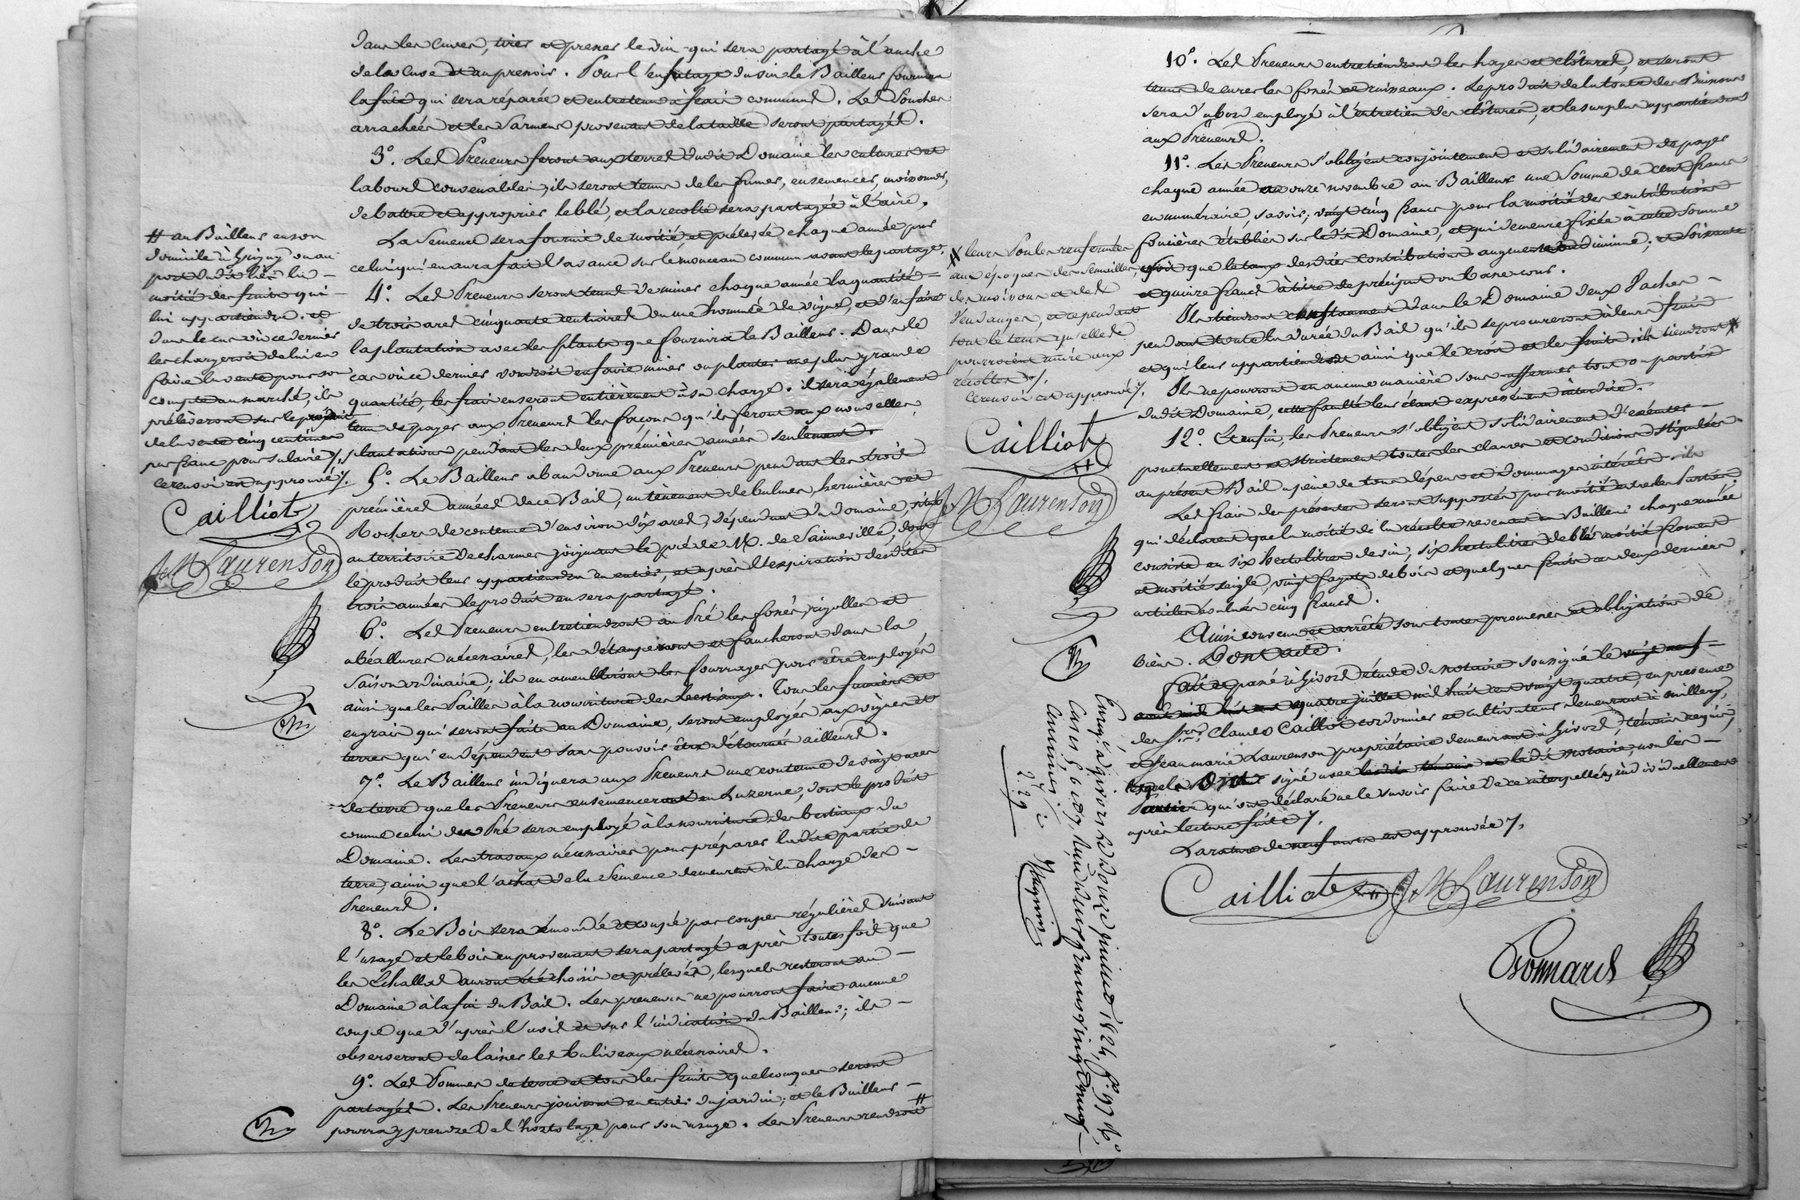 dans les cuves, tirer et presser le vin qui sera partagé à l'anche
de la cuve et au pressoir. Pour l'enfutage du vin le Bailleur fournira
la futée qui sera réparée et entretenue à frais communs. Les Souches
arrachées et les Sarmens provenant de la taille seront partagés.
3°. Les Preneurs feront aux terres dudit Domaine les cultures et
labours convenables, ils seront tenus de les fumer, ensemencer, moissonner,
de battre et approprier le blé, et la récolte sera partagée à l'aire.
La Semence sera fournie de moitié, et prélevée chaque année par
celui qui en aura fait l'avance sur le monceau commun avant le partage.
4°. Les Preneurs seront tenus de miner chaque année la quantité
de trois ares cinquante centiares ou une hommée de vignes, et d'en faire
la plantation avec les plants que fournira le Bailleur. Dans le
cas où ce dernier voudroit en faire miner ou planter une plus grande
quantité, les frais en seront entièrement à sa charge. il sera également
tenu de payer aux Preneurs les façons qu'ils feront aux nouvelles
plantations pendant les deux premières années seulement.
5°. Le Bailleur abandonne aux Preneurs pendant les trois
premières années de ce Bail, un tènement de balmes, hermières et
Rochers de contenue d'environ dix ares, dépendant du domaine, situé
au territoire des charmes joignant le pré de M. de Sainneville, dont
le produit leur appartiendra en entier, et après l'expiration desdites
trois années le produit en sera partagé.
6°. Les Preneurs entretiendront au Pré les fossés, rigolles et
abéallures nécessaires, les détauperont et faucheront dans la
saison ordinaire; ils en ameubleront les fourrages pour être employés
ainsi que les Pailles à la nourriture des bestiaux. Tous les fumiers et
engrais qui seront faits au Domaine, seront employés aux vignes et
terres qui en dépendent sans pouvoir être détournés ailleurs.
7°. Le Bailleur indiquera aux Preneurs une contenue de vingt ares
de terre que les Preneurs ensemenceront en Luzerne, dont le produit
comme celui du Pré sera employé à la nourriture des bestiaux du
Domaine. Les travaux nécessaires pour préparer ladite partie de
terre, ainsi que l'achat de la Semence demeurent à la charge des
Preneurs.
8°. Le Bois sera émondé et coupé par coupes régulières suivant
l'usage et le bois en provenant sera partagé après toutes fois que
les Echallas auront été choisis et prélevés, lesquels resteront au
Domaine à la fin du Bail. Les preneurs ne pourront faire aucune
coupe que d'après l'avis et sur l'indication du Bailleur; ils
observeront de laisser les baliveaux nécessaires.
9°. Les Pommes de terre et tous les fruits quelconques seront
partagés. Les Preneurs jouiront en entier du jardin; et le Bailleur
pourra y prendre de l'hortolage pour son usage. Les Preneurs rendront #
# au Bailleur en son
domicile à Grigny ou au
port dudit lieu la
moitié des fruits qui
lui appartiendra. et
dans le cas où ce dernier
les chargeroit de lui en
faire la vente pour son
compte au marché, ils
prélèveront sur le produit
de la vente cinq centimes
par franc pour salaire.
ce renvoi est approuvé
Cailliot
J. M. Laurenson
10°. Les Preneurs entretiendront les hayes et clôtures, et seront
tenus de curer les fossés et ruisseaux. Le produit de la tonte des Buissons
sera d'abord employé à l'entretien des clôtures, et le surplus appartiendra
aux Preneurs.
11°. Les Preneurs s'obligent conjointement et solidairement de payer
chaque année au onze novembre au Bailleur une Somme de cent francs
en numéraire, savoir; vingt cinq francs pour la moitié des contributions
foncières établies sur ledit Domaine, et qui demeure fixée à cette Somme
soit que le taux desdites contributions augmente ou diminue; et Soixante
et quinze francs à titre de préciput ou basse cour.
Ils tiendront constamment dans le Domaine deux Vaches
pendant toute la durée du Bail qu'ils se procureront à leurs frais
et qui leur appartiendront ainsi que le croît et les fruits. ils tiendront #
Ils ne pourront en aucune manière sous affermer tout ou partie
dudit Domaine, cette faculté leur étant expressément interdite.
12°. Et enfin, les Preneurs s'obligent solidairement d'exécuter
ponctuellement et strictement toutes les clauses et conditions stipulées
au présent Bail à peine de tous dépens et dommages intérêts.
Les frais des présentes seront supportés par moitié entre les Parties
qui déclarent que la moitié de la récolte revenant au Bailleur chaque année
consiste en six hectolitres de vin, six hectolitres de blé moitié froment
et moitié seigle, vingt fagots de bois et quelques fruits
cinq francs.
Ainsi convenu et arrêté sous toutes promesses et obligations de
biens. Dont acte.
Fait et passé à Givors étude du notaire soussigné le
quatre juillet mil huit cent vingt quatre, en présence
des Srs. Claude Cailliot cordonnier et cultivateur demeurant à millery,
et Jean marie Laurenson propriétaire demeurant à Givors, témoins requis,
lesquels ont signé avec ledit notaire, non les
Parties qui ont déclaré ne le savoir faire de ce interpellées individuellement
après lecture faite.
La rature de neuf mots est approuvée.
Cailliot J M Laurenson
Bonnard
# leurs Poules renfermées
aux époques des Semailles,
des moissons et des
Vendanges, et cependant
tout le tems qu'elles
pourroient nuire aux
récoltes.
ce renvoi est approuvé.
Cailliot
J. M. Laurenson
Enreg. à Givors le douze juillet 1824, f° 97